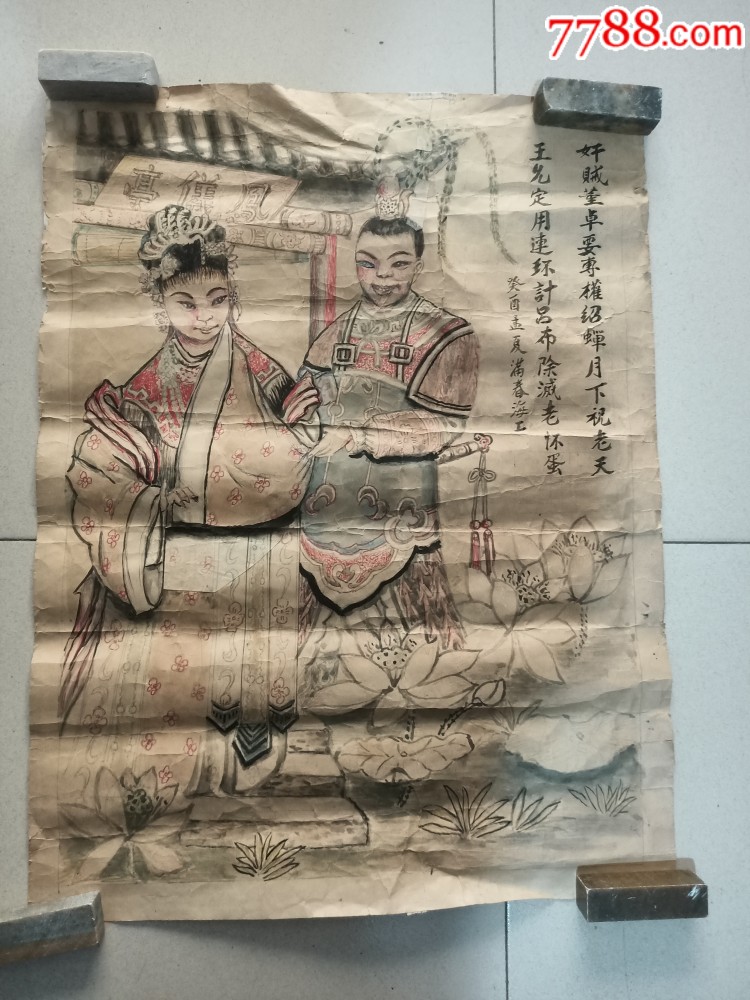 7788.com
鳳儀亭
奸賊董卓要專權绍蟬月下祝老天
王允定用連环計吕布除滅老怀蛋
癸酉孟夏满春海工